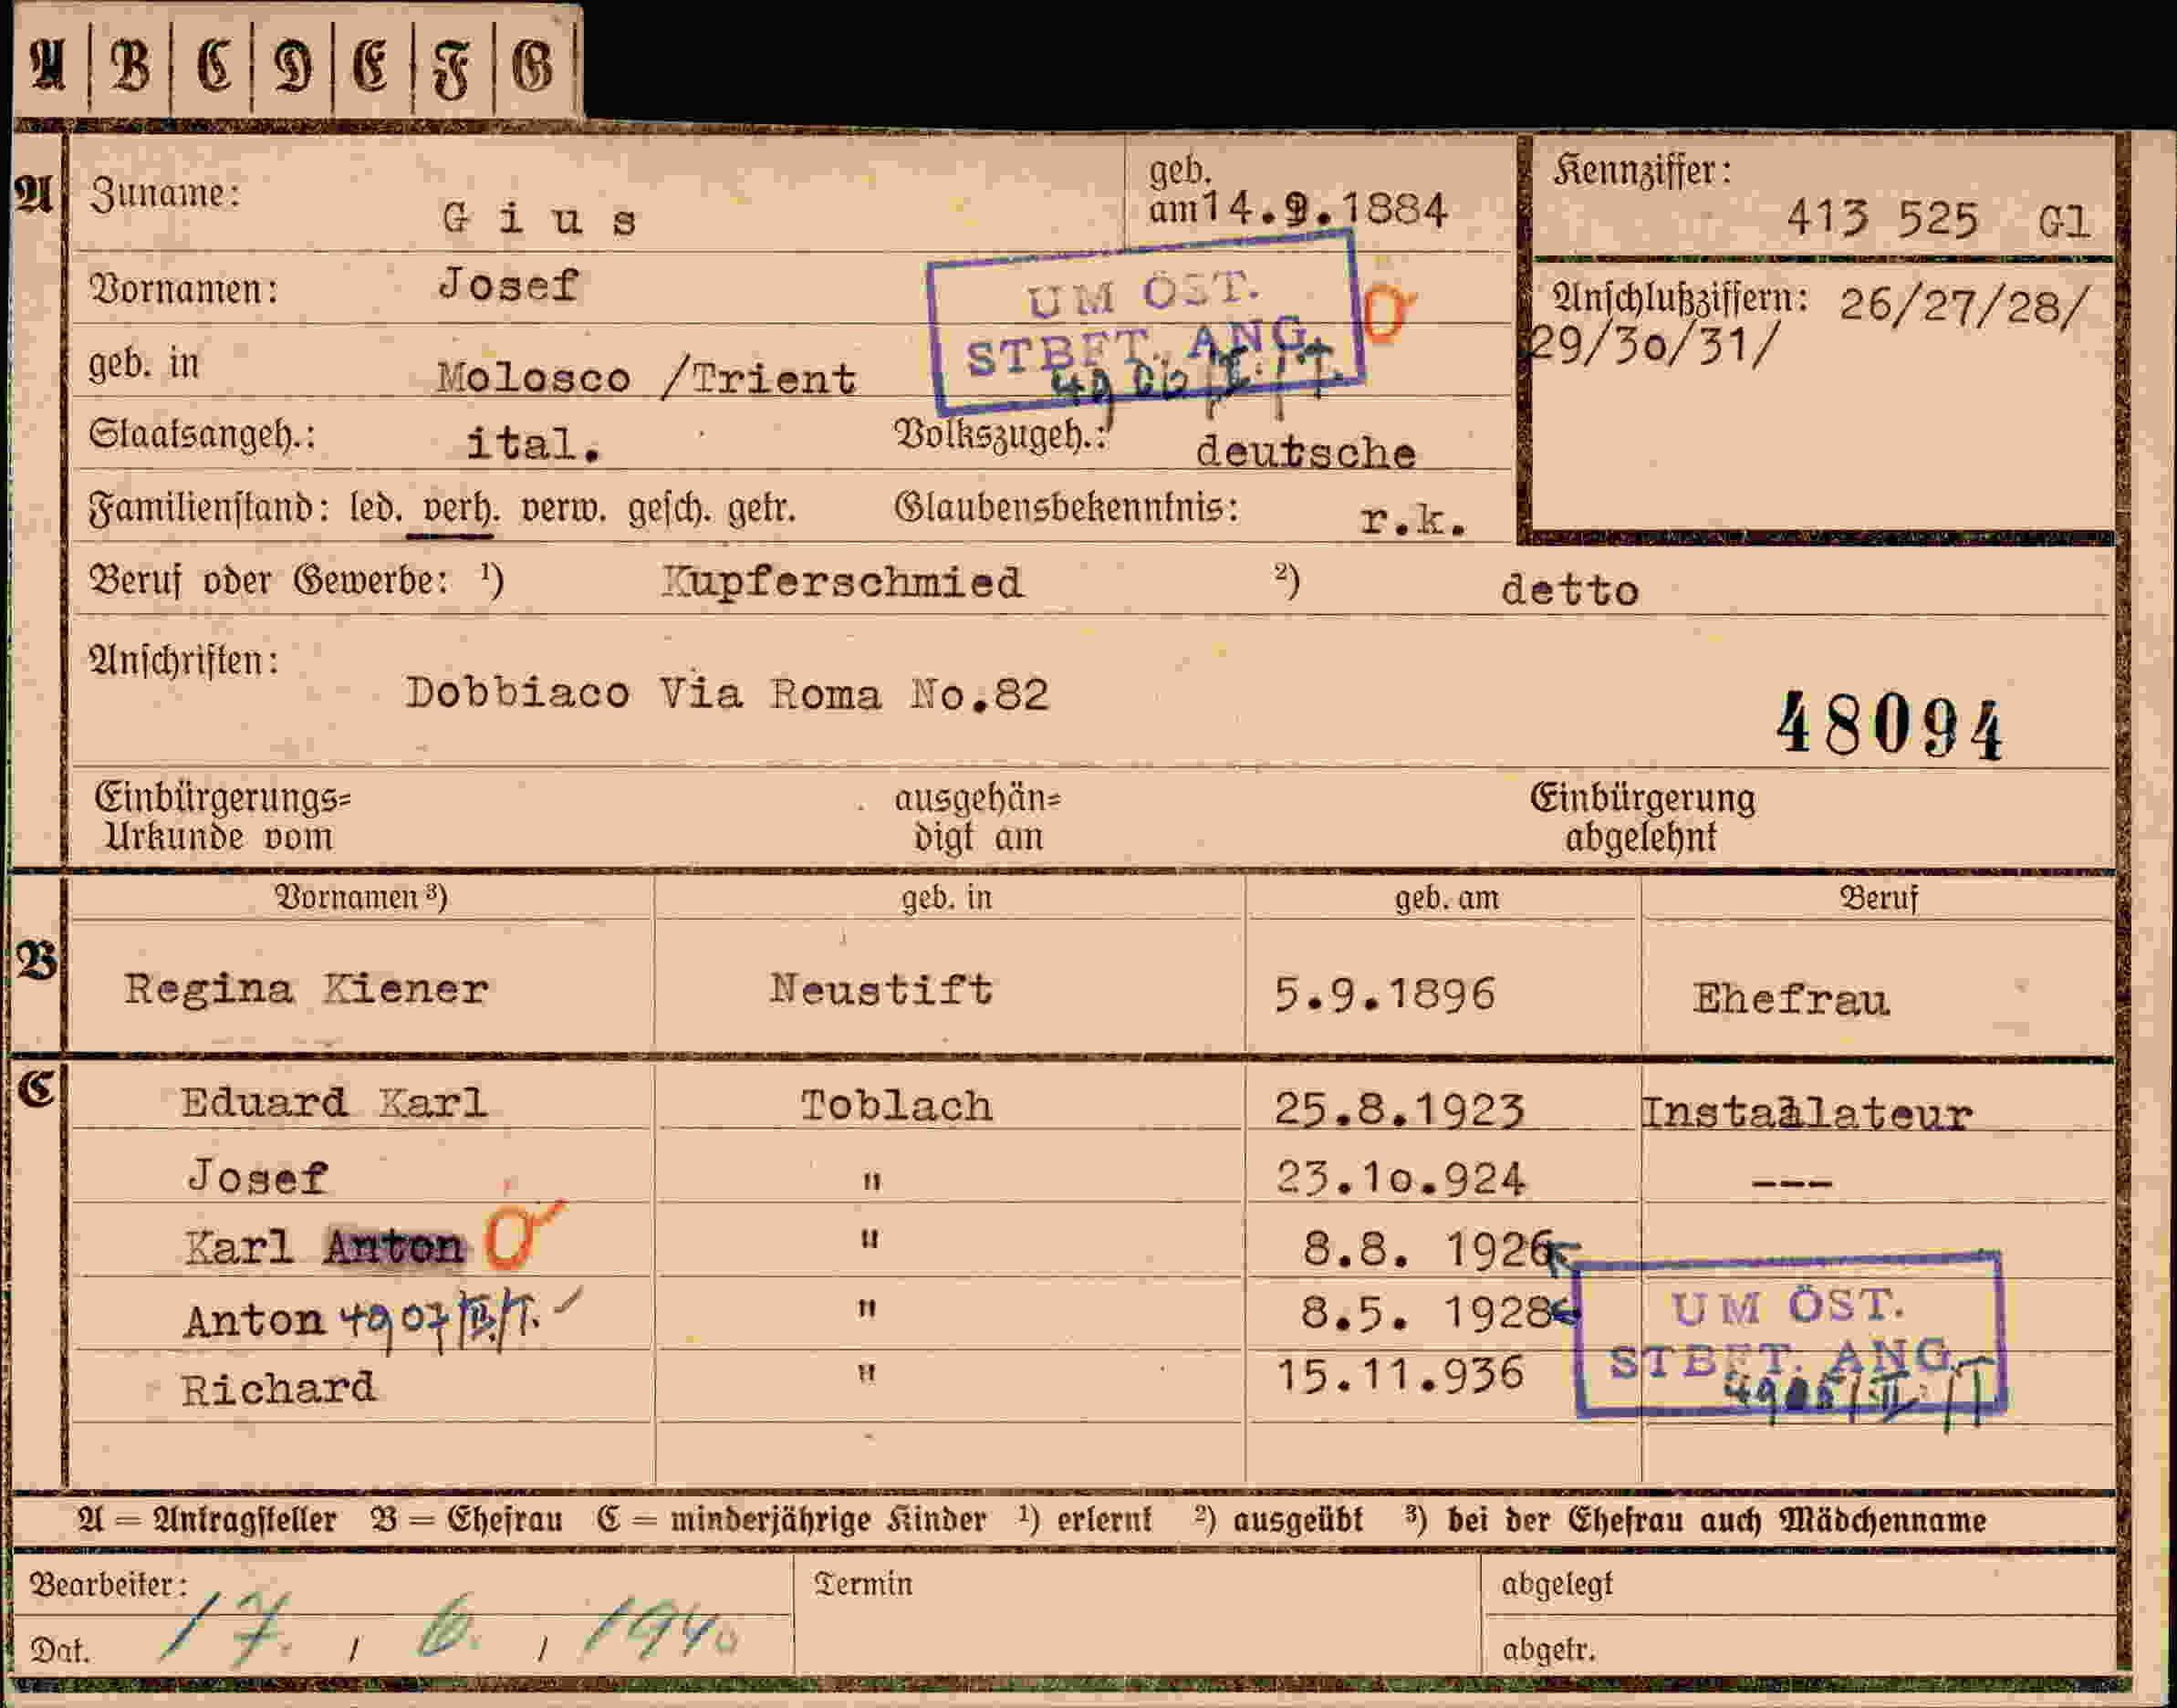 A | B | C | D | E | F | G
A Zuname: Gius geb. am 14.9.1884 Kennziffer: 413 525 Gl
Vornamen: Josef
UM ÖST.
STBFT. ANG.
Anschlußziffern: 26/27/28/
29/30/31/
geb. in Molosco /Trient
Staatsangeh.: ital. Volkszugeh.: deutsche
Familienstand: led. verh. verw. gesch. getr. Glaubensbekenntnis: r.k.
Beruf oder Gewerbe: ¹) Kupferschmied ²) detto
Anschriften: Dobbiaco Via Roma No.82
48094
Einbürgerungs= ausgehän= Einbürgerung
Urkunde vom digt am abgelehnt
Vornamen ³) geb. in geb. am Beruf
B Regina Kiener Neustift 5.9.1896 Ehefrau
C Eduard Karl Toblach 25.8.1923 Installateur
Josef " 23.10.924 ---
Karl Anton " 8.8. 1926
Anton 4907/II/T. " 8.5. 1928
UM ÖST.
STBFT. ANG.
Richard " 15.11.936
A = Antragsteller B = Ehefrau C = minderjährige Kinder ¹) erlernt ²) ausgeübt ³) bei der Ehefrau auch Mädchenname
Bearbeiter: Termin abgelegt
Dat. 17. / 6. / 1940 abgetr.